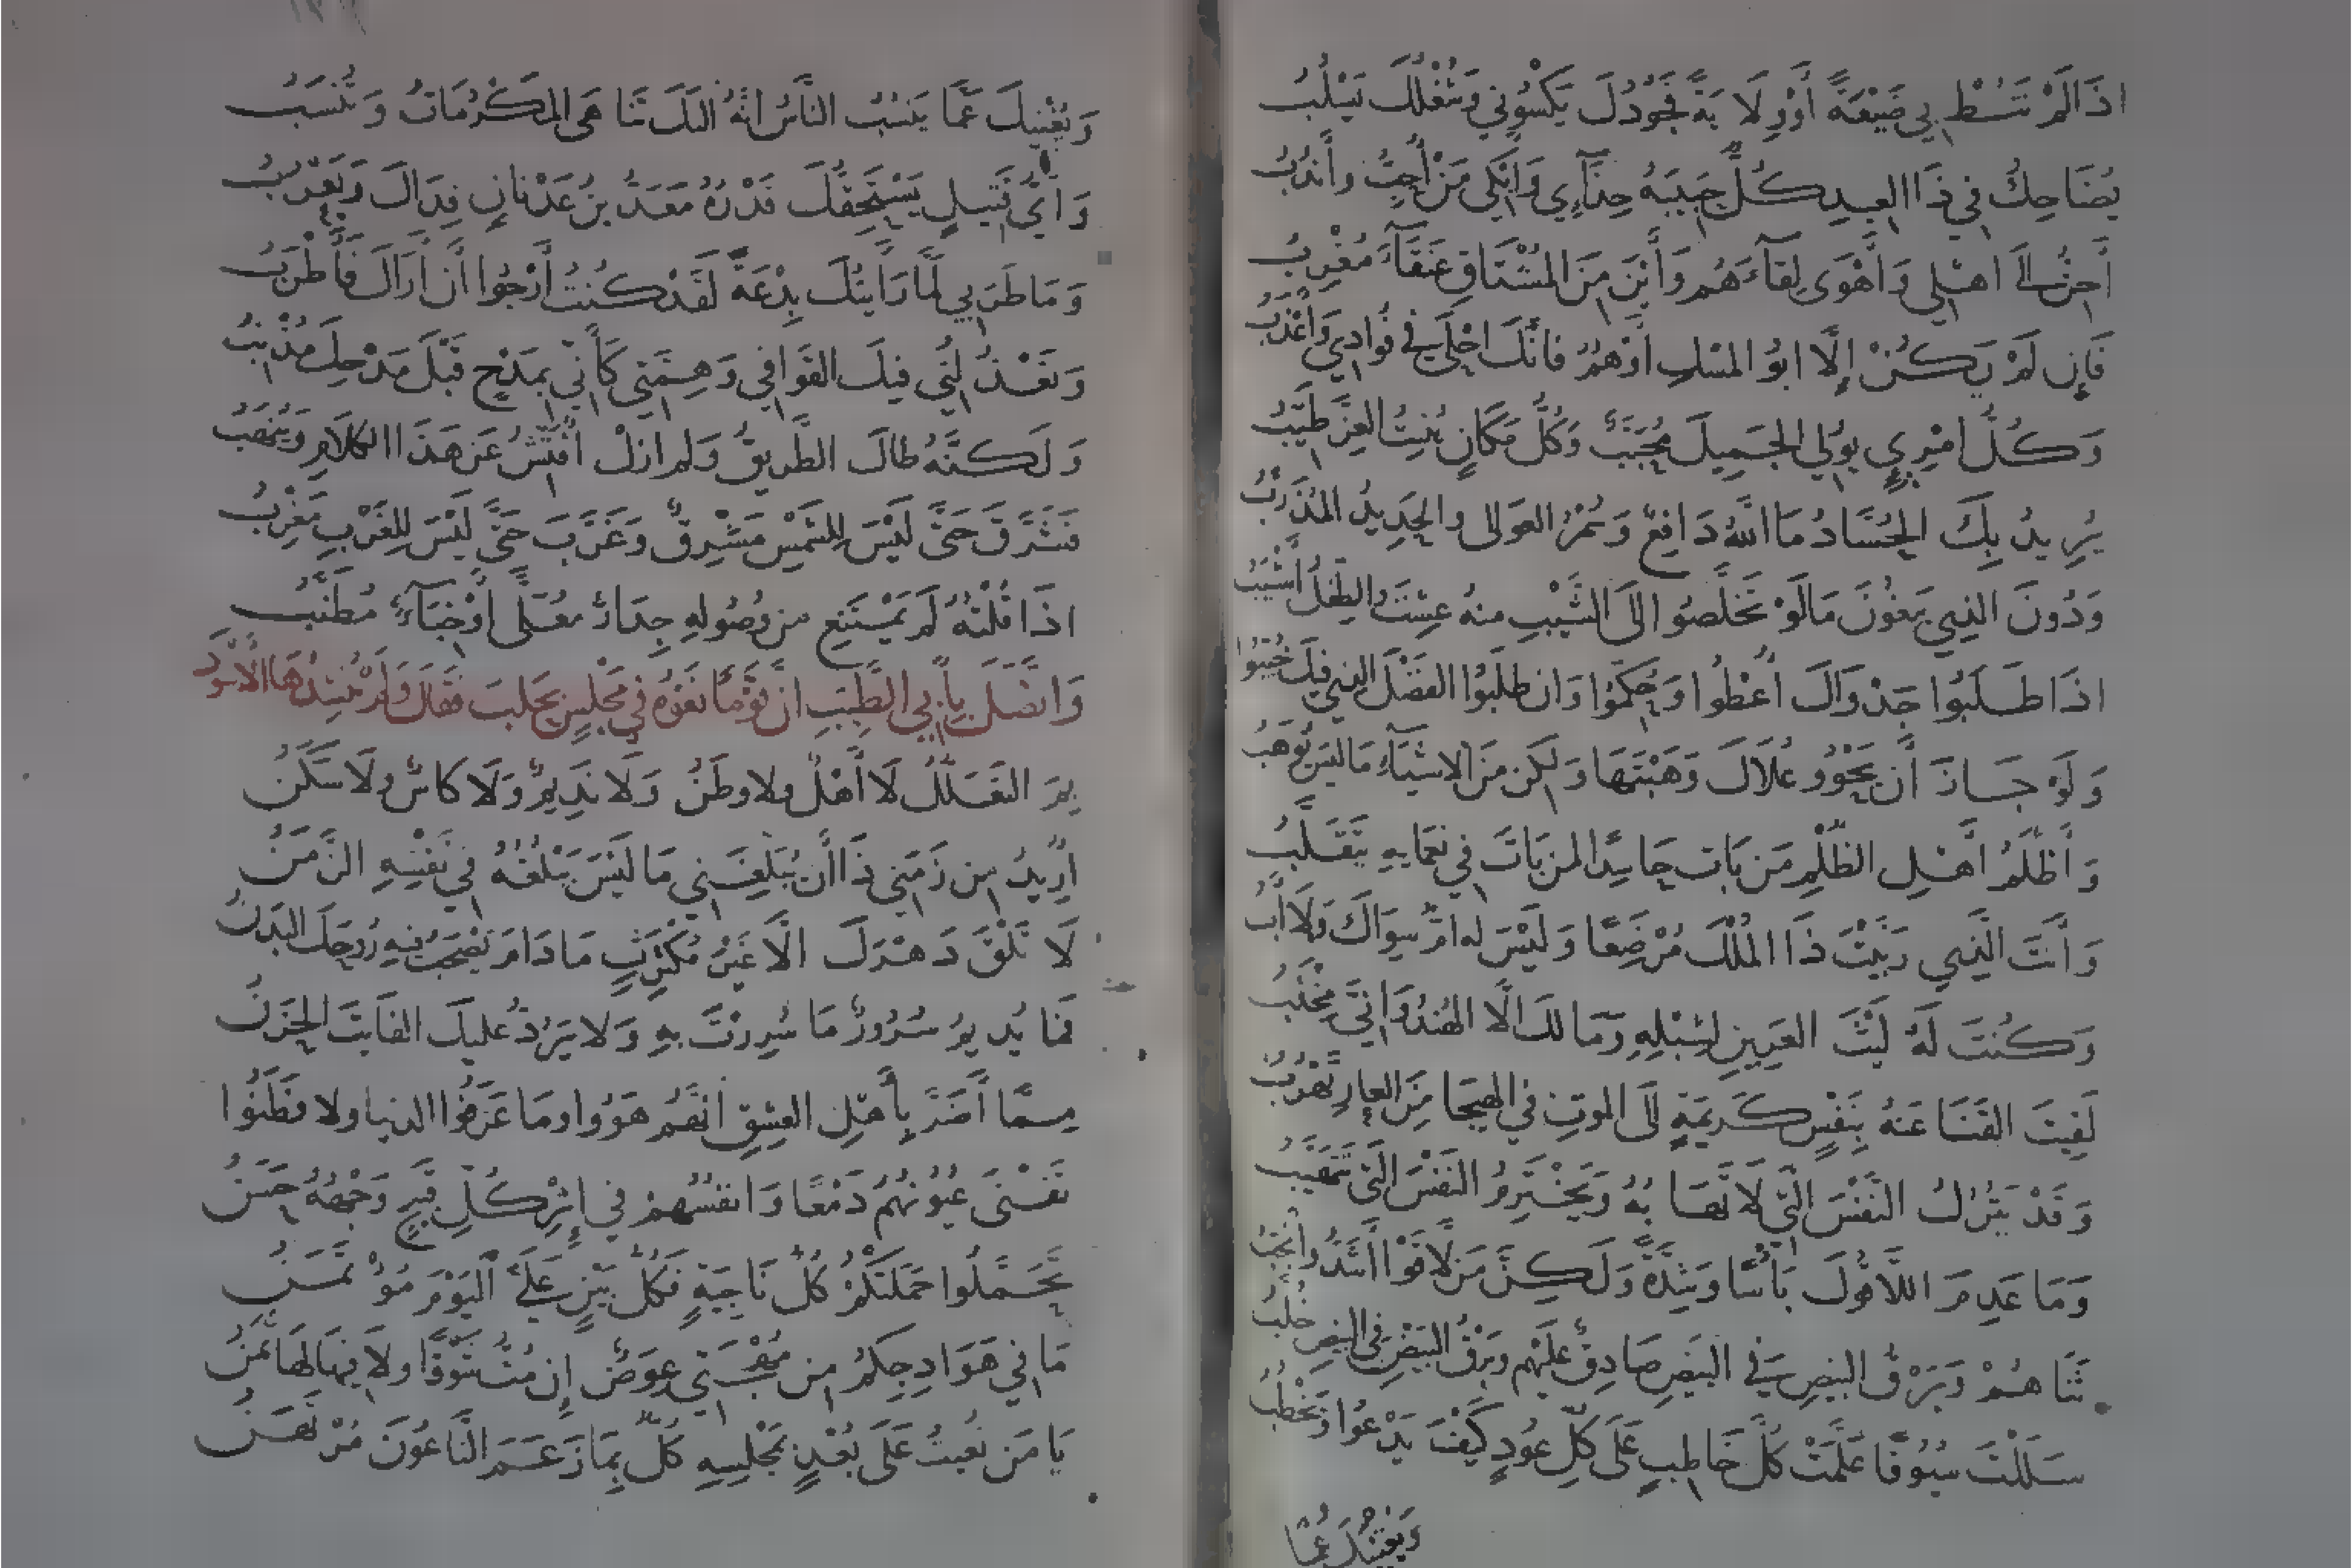 اذَا لَمْ تَنُطْ بِي ضَيْعَةً أَوْ وِلَايَةً فَجُودُكَ يَكْسُونِي وَشُغْلُكَ يَسْلُبُ
يُضَاحِكُ فِي ذَا العِيدِ كُلٌّ حَبِيبَهُ حِذَآءِي وَأَبْكِي مَنْ أُحِبُّ وأَنْدُبُ
أَحِنُّ الَى اهْلِي وَأَهْوَى لِقَآءَهُم وَأَيْنَ مِنَ المُشْتَاقِ عَنْقَآءُ مُغْرِبُ
فَإِن لَمْ يَكُنْ إِلَّا ابُو المِسْكِ أَوْهُمُ فانَّكَ احْلَى فِي فُوَادِي وَأَعْذَبُ
وَكُلُّ امْرِيٍ يُولِي الجَمِيلَ مُحَبَّبٌ وَكُلُّ مَكَانٍ يُنْبِتُ العِزَّ طَيِّبُ
يُرِيدُ بِكَ الحُسَّادُ مَا اللهُ دَافِعٌ وَسُمْرُ العَوَالى والحَدِيدُ المُذَرَّبُ
وَدُونَ الذِي يَبْغُونَ مَا لَوْ تَخَلَّصُوا الَى الشَّيْبِ منهُ عِشْتَ والطِّفْلُ أَشْيَبُ
اذَا طَلَبُوا جَدْوَاكَ أُعْطُوا وَحُكِّمُوا وَان طَلَبُوا الفَضْلَ الذِي فِيكَ خُيِّبُوا
وَلَوْ جَازَ أَن يَحْوُو عُلَاكَ وَهَبْتَهَا وَلكِن مِنَ الاشْيَآءِ مَا لَيْسَ يُوهَبُ
وَأَظْلَمُ أَهْلِ الظُّلْمِ مَن بَاتَ حَاسِدًا لمن بَاتَ فِي نَعْمَايِهِ يَتَقَلَّبُ
وَأَنْتَ الَّذِي رَبَّيْتَ ذَا المُلْكَ مُرْضَعًا وَلَيْسَ لَه امٌّ سِوَاكَ وَلَا أَبُ
وَكُنْتَ لَهُ لَيْثَ العَرِينِ لِشِبْلِهِ وَمَا لكَ الَّا الهُنْدُوَانِيَّ مِخْلَبُ
لَقِيتَ القَنَا عَنْهُ بِنَفْسٍ كَرِيمَةٍ الَى المَوتِ فِي الهَيْجَا مِنَ العَارِ تَهْرُبُ
وَقَدْ يَتْرُكُ النَّفْسَ الَّتِي لَا تَهَابُهُ وَيَخْتَرِمُ النَّفْسَ الَّتِي تَتَهَيَّبُ
وَمَا عَدِمَ اللَّاقُوكَ بَأْسًا وَشِدَّةً وَلَكِنَّ مَن لَاقَوْا أَشَدُّ وانْجَبُ
ثَنَاهُمْ وَبَرْقُ البِيضِ فِي البَيْضِ صَادِقٌ عَلَيْهِم وَبَرْقُ البَيْضِ فِي البِيضِ خُلَّبُ
سَلَلْتَ سُيُوفًا عَلَّمَتْ كُلَّ خَاطِبٍ عَلَى كُلِّ عُودٍ كَيْفَ يَدْعُوا وَيَخْطُبُ
وَيُغْنِيكَ عَمَّا
وَيُغْنِيكَ عَمَّا يَنْسُبُ النَّاسُ انَّهُ الَيْكَ تَنَاهَى المَكْرُمَاتُ وَتُنْسَبُ
وَأَيُّ قَبِيلٍ يَسْتَحِقُّكَ قَدْرُهُ مَعَدُّ بنُ عَدْنَانٍ فِدَاكَ وَيَعْرُبُ
وَمَا طَرَبِي لَمَّا رَأَيْتُكَ بِدْعَةً لَقَدْ كُنْتُ أَرْجُوا أَن أَرَاكَ فَأَطْرَبُ
وَتَعْذُلُنِي فِيكَ القَوَافِي وَهِمَّتِي كَأَنِّي بِمَدْحٍ قَبْلَ مَدْحِكَ مُذْنِبُ
وَلَكِنَّهُ طَالَ الطَّرِيقُ وَلم ازَلْ أُفَتِّشُ عَن هَذَا الكَلَامِ وَيُنْهَبُ
فَشَرَّقَ حَتَّى لَيْسَ لِلشَّمْسِ مَشْرِقٌ وَغَرَّبَ حَتَّى لَيْسَ لِلغَرْبِ مَغْرِبُ
اذَا قُلْتُهُ لَمْ يَمْتَنِع من وُصُولِهِ جِدَارٌ مُعَلًّى أَوْ خِبَآءٌ مُطَنَّبُ
وَاتَّصَلَ بِأَبِي الطَّيِّبِ انَّ قَوْمًا نَعَوْهُ فِي مَجْلِسٍ بِحَلَبَ فَقَالَ وَلَمْ يُنْشِدْهَا الاسْوَدَ
بِمَ التَّعَلُّلُ لَا أَهْلٌ ولا وطَنُ وَلَا نَدِيمٌ وَلَا كَاسٌ ولَا سَكَنُ
أُرِيدُ من زَمَنِي ذَا أَن يُبَلِّغَنِي مَا لَيْسَ يَبْلُغُهُ فِي نَفْسِهِ الزَّمَنُ
لَا تَلْقَ دَهْرَكَ الَّا غَيْرَ مُكْتَرِثٍ مَا دَامَ يَصْحَبُ فِيهِ رُوحَكَ البَدَنُ
فَمَا يُدِيمُ سُرُورٌ مَا سُرِرْتَ بِهِ وَلا يَرُدُّ عليكَ الفَايتَ الحَزَنُ
مِمَّا أَضَرَّ بِأَهْلِ العِشْقِ أنَّهُم هَوُوا ومَا عَرَفُوا الدنيا ولا فَطَنُوا
تَفْنَى عُيُونُهُمُ دَمْعًا وَانفُسُهُمْ فِي إِثْرِ كُلِّ قَبِيحٍ وَجْهُهُ حَسَنُ
تَحَمَّلُوا حَمَلَتْكُمْ كُلُّ نَاجِيَةٍ فَكُلُّ بَيْنٍ عَلَيَّ اليَوْمَ مُؤْتَمَنُ
مَا فِي هَوَادِجِكُمْ من مُهْجَتِي عِوَضٌ إِن مُتُّ شَوْقًا ولَا فِيهَا لَهَا ثَمَنُ
يَا مَن نُعِيتُ عَلَى بُعْدٍ بِمَجْلِسِهِ كُلٌّ بِمَا زَعَمَ النَّاعُونَ مُرْتَهَنُ